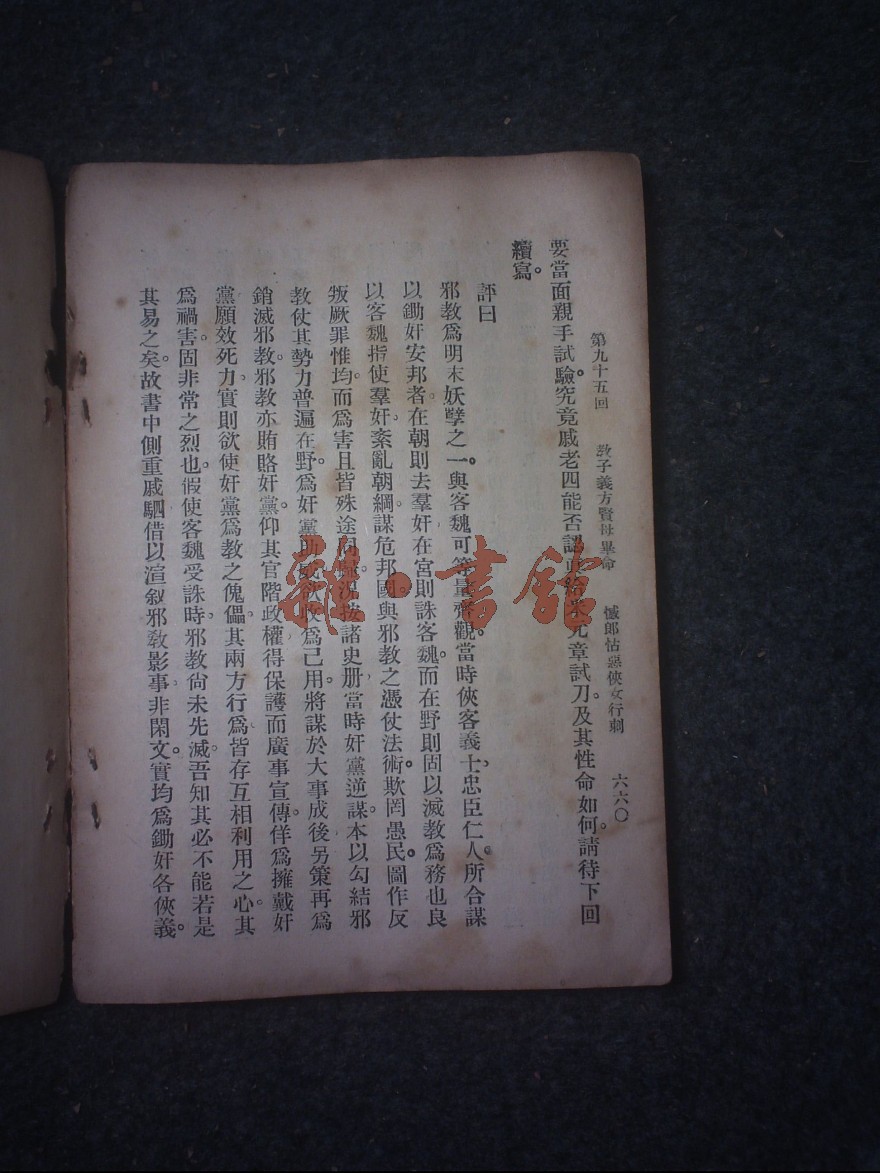 第九十五回 教子義方賢母畢命 憾郎怙惡俠女行刺 六六〇
要當面親手試驗。究竟戚老四能否認真給元章試刀。及其性命如何。請待下回
續寫。
評曰
邪教爲明末妖孽之一。與客魏可等量齊觀。當時俠客義士。忠臣仁人。所合謀
以鋤奸安邦者。在朝則去羣奸。在宮則誅客魏。而在野則固以滅教爲務也。良
以客魏指使羣奸。紊亂朝綱。謀危邦國。與邪教之憑仗法術。欺罔愚民。圖作反
叛。厥罪惟均。而爲害且皆殊途同歸。況按諸史册。當時奸黨逆謀。本以勾結邪
教。仗其勢力普遍在野。爲奸黨助威。欲收爲己用。將謀於大事成後。另策再爲
銷滅邪教。邪教亦賄賂奸黨。仰其官階政權。得保護而廣事宣傳。佯爲擁戴奸
黨。願效死力。實則欲使奸黨爲教之傀儡。其兩方行爲。皆存互相利用之心。其
爲禍害。固非常之烈也。假使客魏受誅時。邪教尙未先滅。吾知其必不能若是
其易之矣。故書中側重戚駟。借以渲叙邪敎影事。非閑文。實均爲鋤奸各俠義。
雜·書館